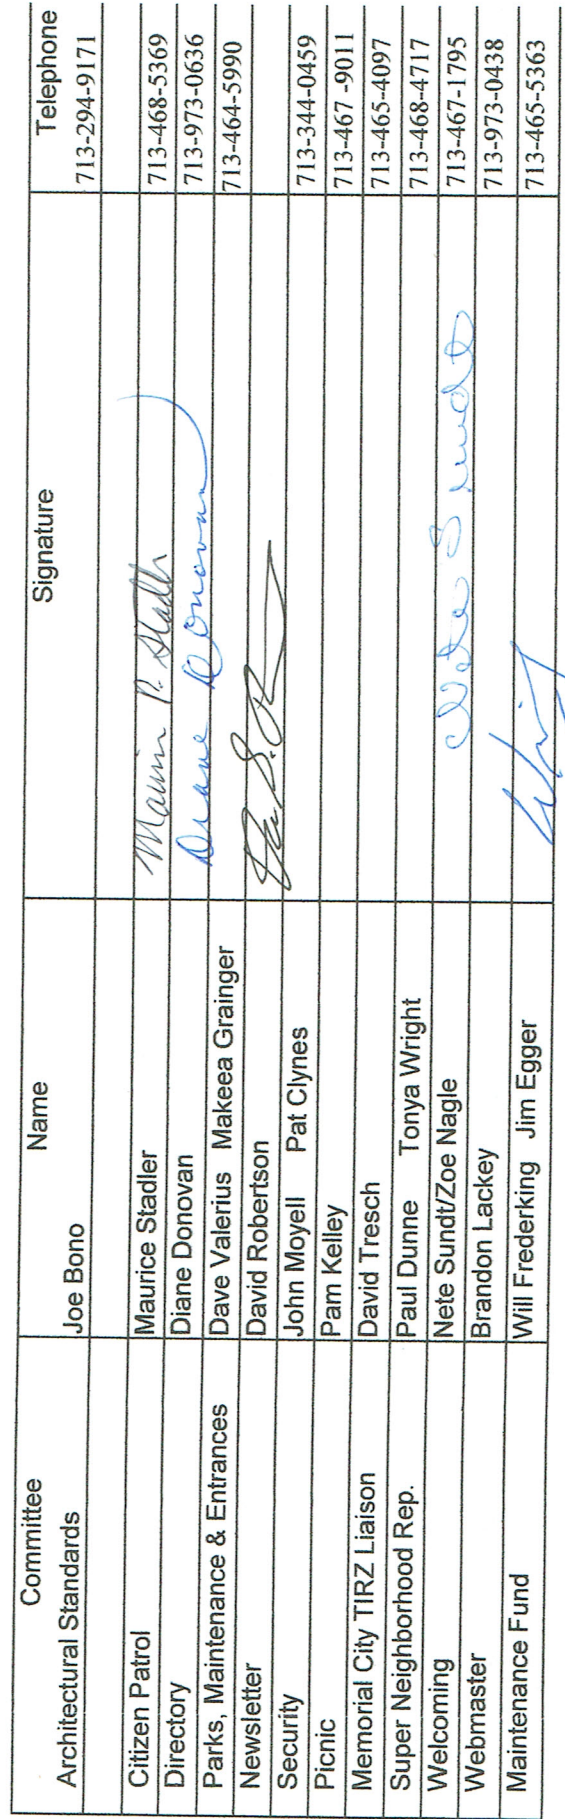 Committee Name Signature Telephone
Architectural Standards Joe Bono 713-294-9171
Citizen Patrol Maurice Stadler Maurice P. Stadler 713-468-5369
Directory Diane Donovan Diane Donovan 713-973-0636
Parks, Maintenance & Entrances Dave Valerius Makeea Grainger 713-464-5990
Newsletter David Robertson
Security John Moyell Pat Clynes 713-344-0459
Picnic Pam Kelley 713-467 -9011
Memorial City TIRZ Liaison David Tresch 713-465-4097
Super Neighborhood Rep. Paul Dunne Tonya Wright 713-468-4717
Welcoming Nete Sundt/Zoe Nagle Nete Sundt 713-467-1795
Webmaster Brandon Lackey 713-973-0438
Maintenance Fund Will Frederking Jim Egger 713-465-5363